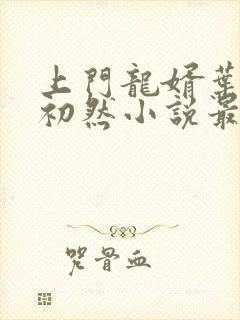 上門龍婿葉
初然小說最
咒骨血